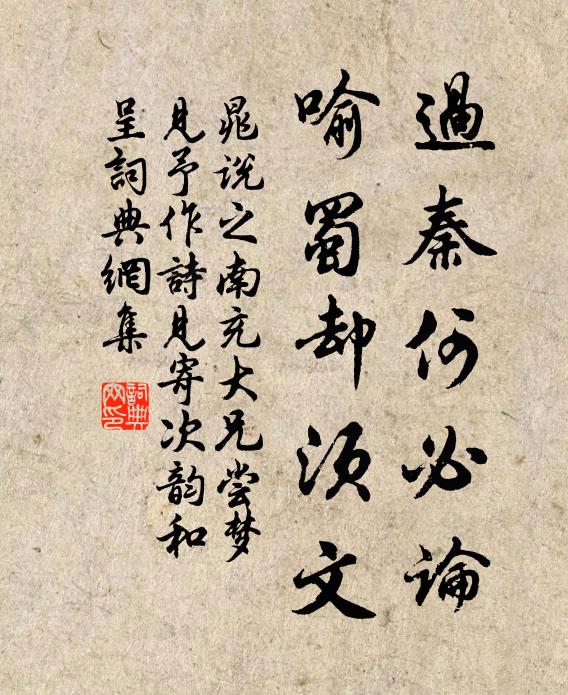 過秦何必論
喻蜀却須文
晁说之南充大兄尝梦
見予作詩見寄次韵和
呈詞典網集
詞典网印